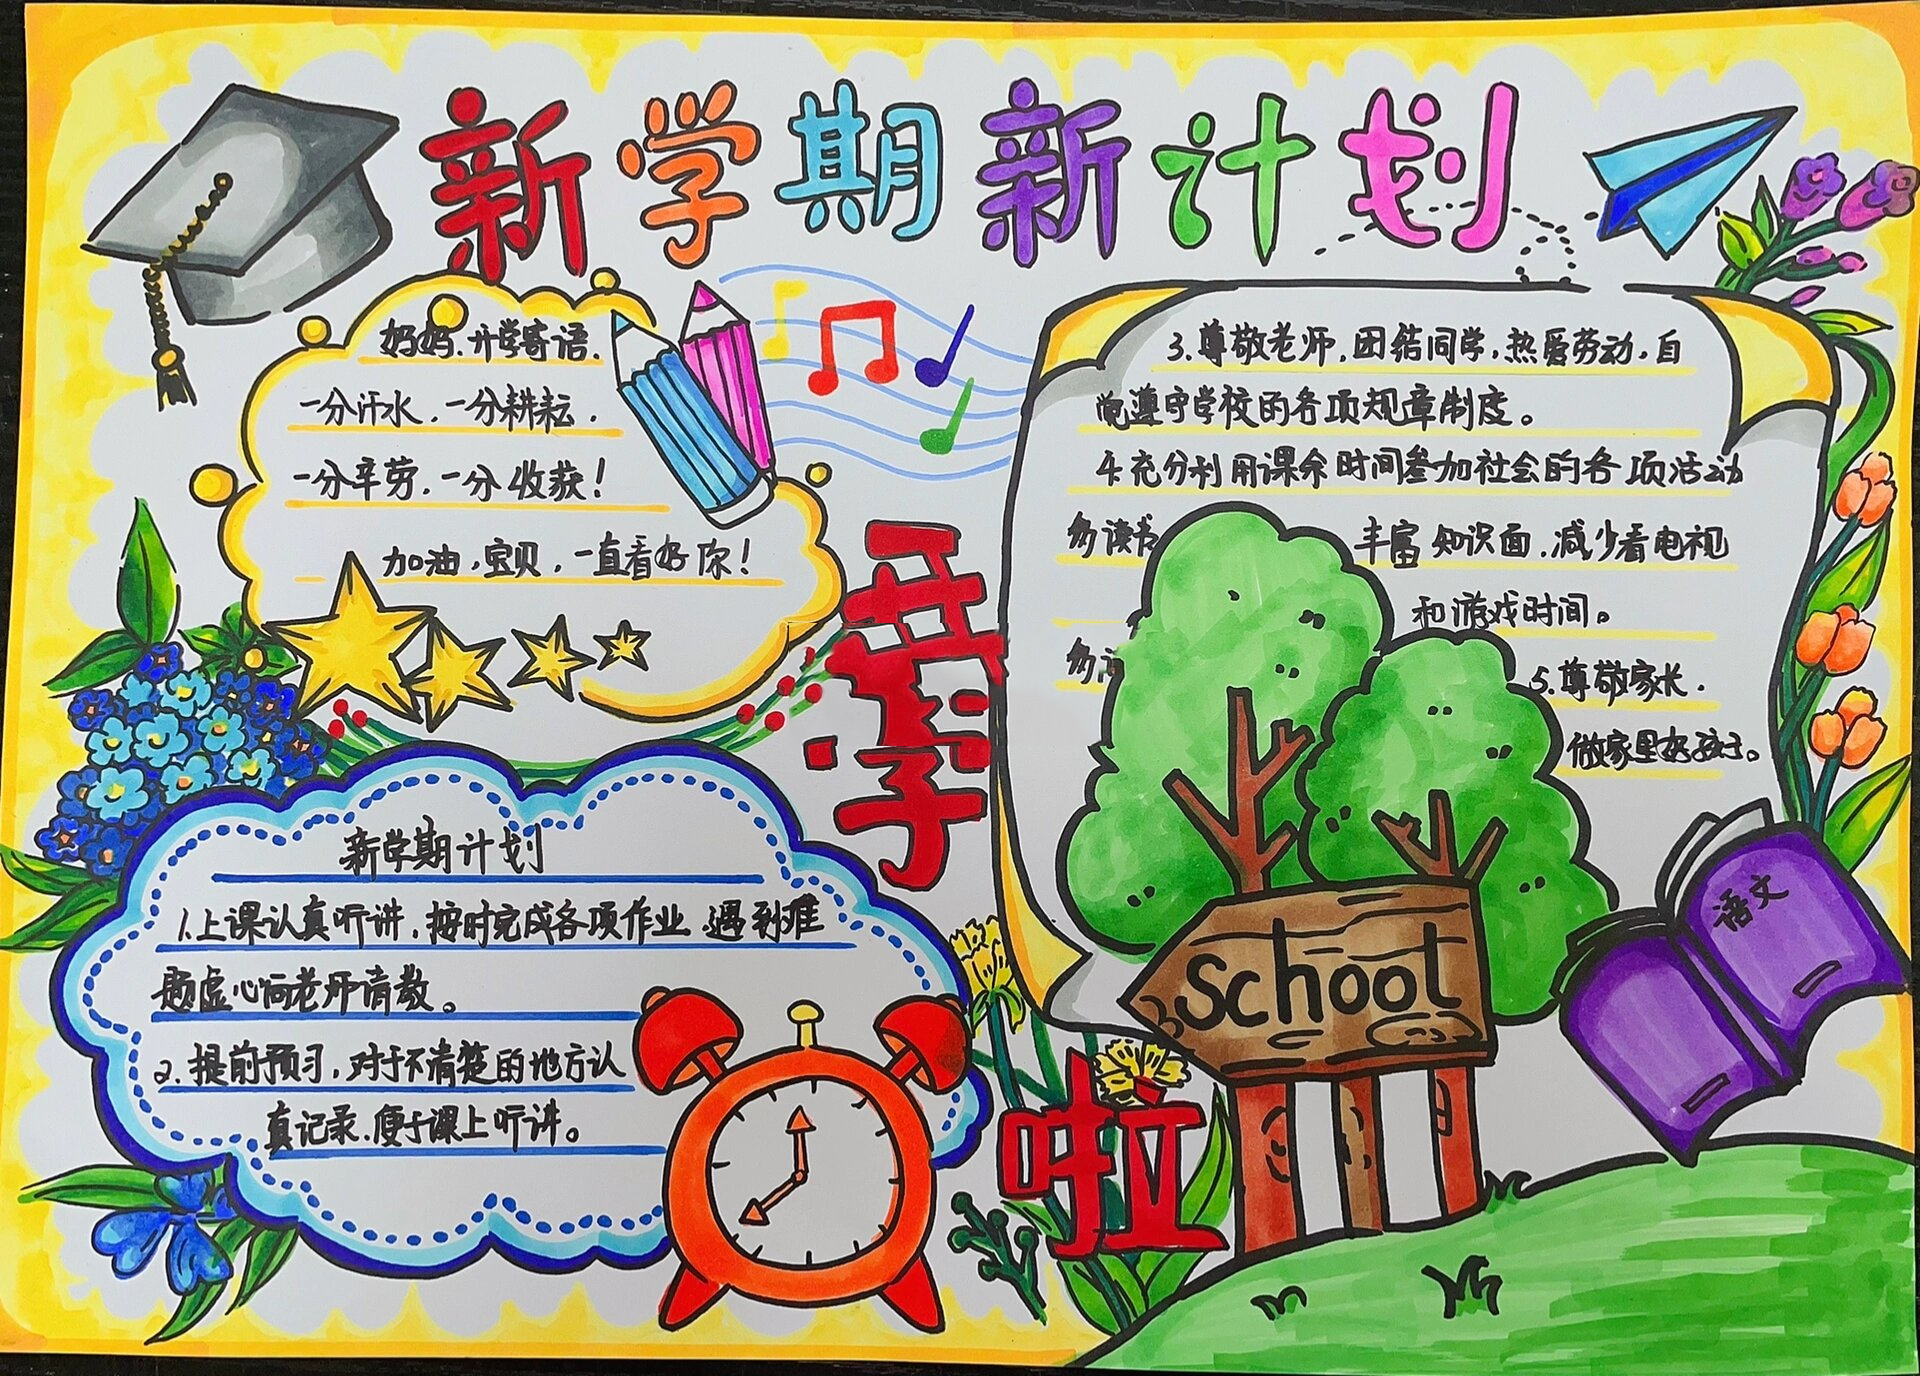 新学期新计划
妈妈.开学寄语.
一分汗水.一分耕耘.
一分辛劳.一分收获!
加油,宝贝,一直看好你!
开学
啦
新学期计划
1.上课认真听讲,按时完成各项作业.遇到难
题虚心向老师请教。
2.提前预习,对于不清楚的地方认
真记录.便于课上听讲。
3.尊敬老师.团结同学,热爱劳动,自
觉遵守学校的各项规章制度。
4.充分利用课余时间参加社会的各项活动
多读书 丰富知识面.减少看电视
和游戏时间。
多
5.尊敬家长.
做家里好孩子。
School
语文